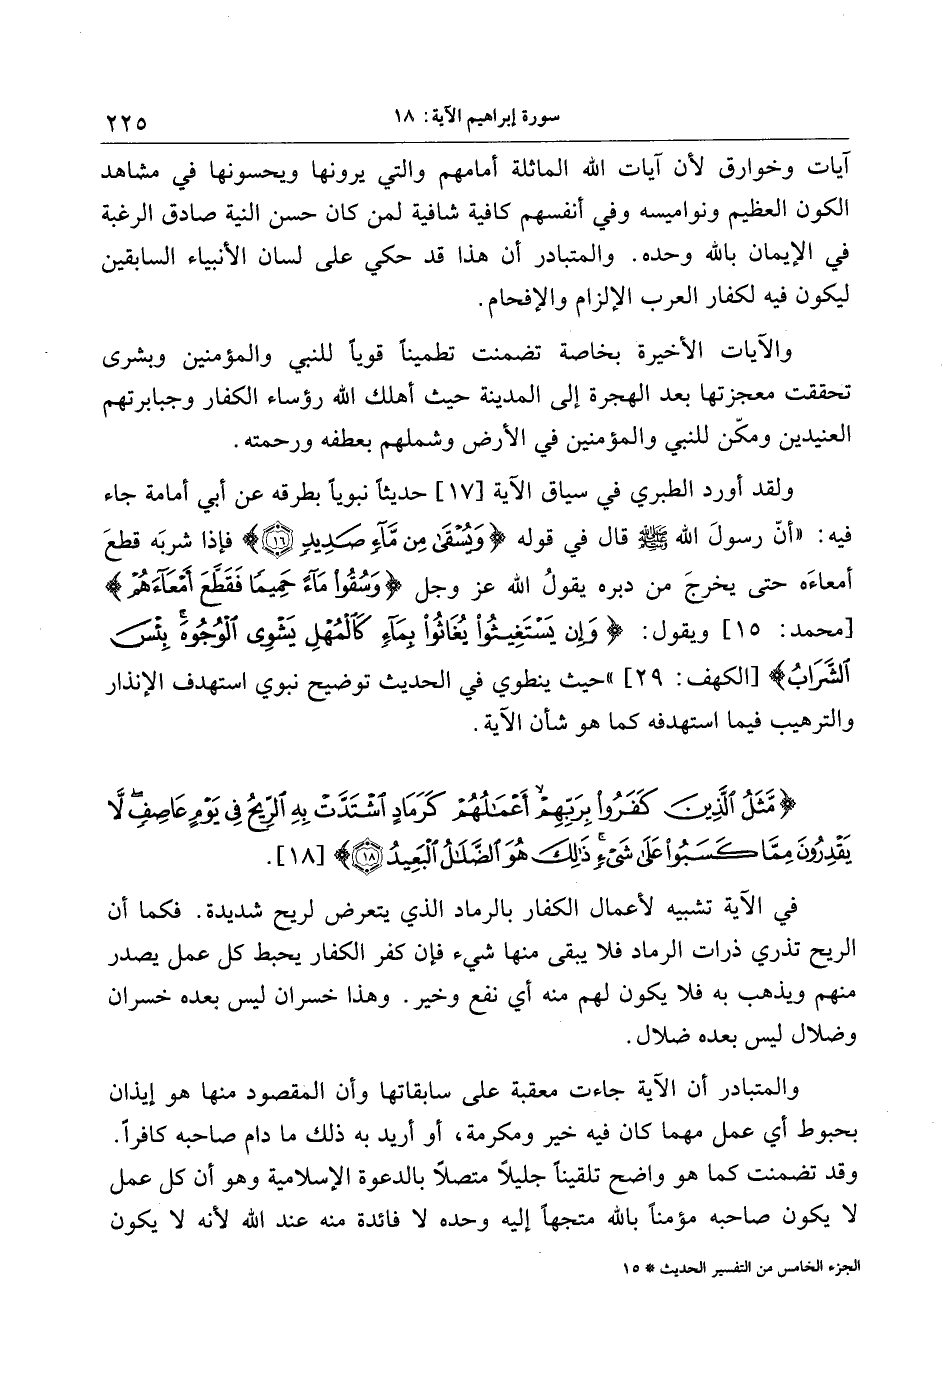 سورة إبراهيم الآية: ١٨
٢٢٥
آيات وخوارق لأن آيات الله الماثلة أمامهم والتي يرونها ويحسونها في مشاهد
الكون العظيم ونواميسه وفي أنفسهم كافية شافية لمن كان حسن النية صادق الرغبة
في الإيمان بالله وحده. والمتبادر أن هذا قد حكي على لسان الأنبياء السابقين
ليكون فيه لكفار العرب الإلزام والإفحام.
والآيات الأخيرة بخاصة تضمنت تطميناً قوياً للنبي والمؤمنين وبشرى
تحققت معجزتها بعد الهجرة إلى المدينة حيث أهلك الله رؤساء الكفار وجبابرتهم
العنيدين ومكّن للنبي والمؤمنين في الأرض وشملهم بعطفه ورحمته.
ولقد أورد الطبري في سياق الآية [١٧] حديثاً نبوياً بطرقه عن أبي أمامة جاء
فيه: «أنّ رسولَ الله ﷺ قال في قوله ﴿وَيُسْقَىٰ مِن مَّآءٍ صَدِيدٍ ١٦﴾ فإذا شربَه قطعَ
أمعاءَه حتى يخرجَ من دبره يقولُ الله عز وجل ﴿وَسُقُواْ مَآءً حَمِيمًا فَقَطَّعَ أَمْعَآءَهُمْ﴾
[محمد: ١٥] ويقول: ﴿وَإِن يَسْتَغِيثُواْ يُغَاثُواْ بِمَآءٍ كَٱلْمُهْلِ يَشْوِى ٱلْوُجُوهَۚ بِئْسَ
ٱلشَّرَابُ﴾ [الكهف: ٢٩]»حيث ينطوي في الحديث توضيح نبوي استهدف الإنذار
والترهيب فيما استهدفه كما هو شأن الآية.
﴿مَّثَلُ ٱلَّذِينَ كَفَرُواْ بِرَبِّهِمْۖ أَعْمَٰلُهُمْ كَرَمَادٍ ٱشْتَدَّتْ بِهِ ٱلرِّيحُ فِى يَوْمٍ عَاصِفٍۖ لَّا
يَقْدِرُونَ مِمَّا كَسَبُواْ عَلَىٰ شَىْءٍۚ ذَٰلِكَ هُوَ ٱلضَّلَٰلُ ٱلْبَعِيدُ ١٨﴾ [١٨].
في الآية تشبيه لأعمال الكفار بالرماد الذي يتعرض لريح شديدة. فكما أن
الريح تذري ذرات الرماد فلا يبقى منها شيء فإن كفر الكفار يحبط كل عمل يصدر
منهم ويذهب به فلا يكون لهم منه أي نفع وخير. وهذا خسران ليس بعده خسران
وضلال ليس بعده ضلال.
والمتبادر أن الآية جاءت معقبة على سابقاتها وأن المقصود منها هو إيذان
بحبوط أي عمل مهما كان فيه خير ومكرمة، أو أريد به ذلك ما دام صاحبه كافراً.
وقد تضمنت كما هو واضح تلقيناً جليلاً متصلاً بالدعوة الإسلامية وهو أن كل عمل
لا يكون صاحبه مؤمناً بالله متجهاً إليه وحده لا فائدة منه عند الله لأنه لا يكون
الجزء الخامس من التفسير الحديث * ١٥